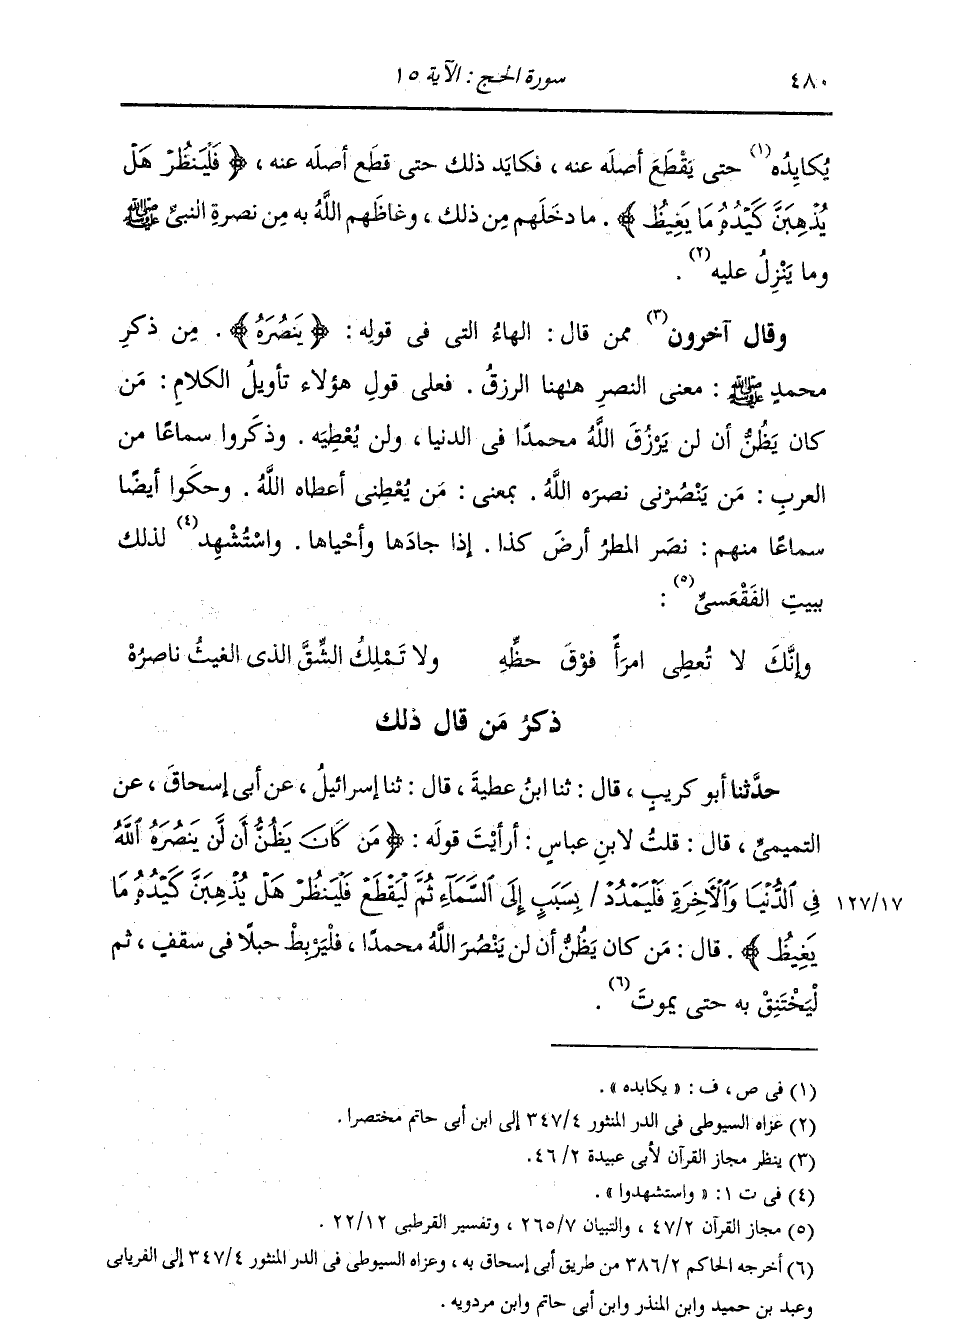 ٤٨٠
سورة الحج : الآية ١٥
يُكايِدُه(١) حتى يَقْطَعَ أصلَه عنه ، فكايَد ذلك حتى قطَع أصلَه عنه ، ﴿ فَلْيَنظُرْ هَلْ
يُذْهِبَنَّ كَيْدُهُ مَا يَغِيظُ ﴾ . ما دخَلَهم مِن ذلك ، وغاظَهم اللَّهُ به مِن نصرةِ النبىِّ ﷺ
وما يَنْزِلُ عليه(٢) .
وقال آخرون(٣) ممن قال : الهاءُ التى فى قولِه : ﴿ يَنصُرَهُ ﴾ . مِن ذكرِ
محمدٍ ﷺ : معنى النصرِ هـٰهنا الرزقُ . فعلى قولِ هؤلاء تأويلُ الكلامِ : مَن
كان يَظُنُّ أن لن يَرْزُقَ اللَّهُ محمدًا فى الدنيا ، ولن يُعْطِيَه . وذكَروا سماعًا من
العربِ : مَن يَنْصُرْنى نصرَه اللَّهُ . بمعنى : مَن يُعْطِنى أعطاه اللَّهُ . وحكَوا أيضًا
سماعًا منهم : نصَر المطرُ أرضَ كذا . إذا جادَها وأحْياها . واسْتُشْهِد(٤) لذلك
ببيتِ الفَقْعَسىِّ(٥) :
وإنَّكَ لا تُعطِى امرَأً فوْقَ حظِّهِ ولا تَمْلِكُ الشِّقَّ الذى الغيثُ ناصرُهْ
ذكرُ مَن قال ذلك
حدَّثنا أبو كريبٍ ، قال : ثنا ابنُ عطيةَ ، قال : ثنا إسرائيلُ ، عن أبى إسحاقَ ، عن
التميمىِّ ، قال : قلتُ لابنِ عباسٍ : أرأيْتَ قولَه : ﴿ مَن كَانَ يَظُنُّ أَن لَّن يَنصُرَهُ ٱللَّهُ
فِى ٱلدُّنْيَا وَٱلْآخِرَةِ فَلْيَمْدُدْ / بِسَبَبٍ إِلَى ٱلسَّمَآءِ ثُمَّ لْيَقْطَعْ فَلْيَنظُرْ هَلْ يُذْهِبَنَّ كَيْدُهُ مَا ١٢٧/١٧
يَغِيظُ ﴾ . قال : مَن كان يَظُنُّ أن لن يَنْصُرَ اللَّهُ محمدًا ، فلْيَرْبِطْ حبلًا فى سقفٍ ، ثم
لْيَخْتَنِقْ به حتى يموتَ(٦) .
(١) فى ص ، ف : « يكابده » .
(٢) عزاه السيوطى فى الدر المنثور ٣٤٧/٤ إلى ابن أبى حاتم مختصرا .
(٣) ينظر مجاز القرآن لأبى عبيدة ٤٦/٢ .
(٤) فى ت ١ : « واستشهدوا » .
(٥) مجاز القرآن ٤٧/٢ ، والتبيان ٢٦٥/٧ ، وتفسير القرطبى ٢٢/١٢ .
(٦) أخرجه الحاكم ٣٨٦/٢ من طريق أبى إسحاق به ، وعزاه السيوطى فى الدر المنثور ٣٤٧/٤ إلى الفريابى
وعبد بن حميد وابن المنذر وابن أبى حاتم وابن مردويه .